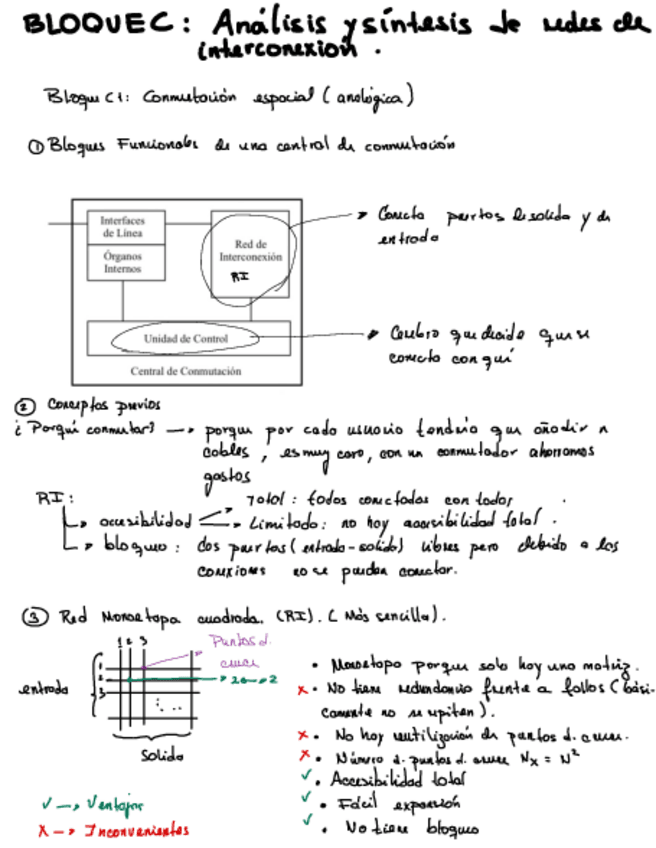 BLOQUE C: Análisis y síntesis de redes de
interconexión.
Bloque C1: Conmutación espacial (analógica)
① Bloques Funcionales de una central de conmutación
Interfaces
de Línea
Órganos
Internos
Red de
Interconexión
RI
Unidad de Control
Central de Conmutación
Conecta puertos de salida y de
entrada
Cerebro que decide que se
conecta con qué
② Conceptos previos
¿Porqué conmutar? → porque por cada usuario tendría que añadir n
cables, es muy caro, con un conmutador ahorramos
gastos
RI:
→ accesibilidad
Total: todos conectados con todos.
Limitada: no hay accesibilidad total.
→ bloqueo: dos puertos (entrada-salida) libres pero debido a las
conexiones no se pueden conectar.
③ Red Monoetapa cuadrada. (RI). (Más sencilla).
1 2 3
Puntos d.
cruce
1
2
3
entrada
2 → 2
...
Salida
✓ → Ventajas
x → Inconvenientes
• Monoetapa porque solo hay una matriz.
x • No tiene redundancia frente a fallos (bási-
camente no se repiten).
x • No hay reutilización de puntos d. cruce.
x • Número d. puntos d. cruce Nx = N²
✓ • Accesibilidad total
✓ • Fácil expansión
✓ • No tiene bloqueo